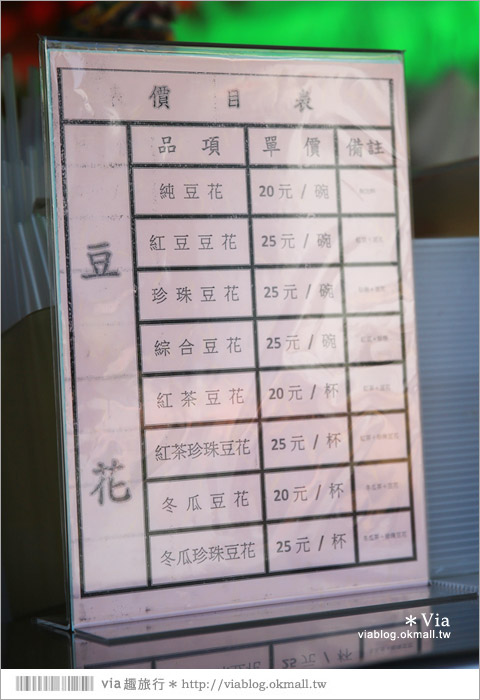 價目表
品項 單價 備註
豆花
純豆花 20元/碗
紅豆豆花 25元/碗
珍珠豆花 25元/碗
綜合豆花 25元/碗
紅茶豆花 20元/杯
紅茶珍珠豆花 25元/杯
冬瓜豆花 20元/杯
冬瓜珍珠豆花 25元/杯
*Via
viablog.okmall.tw
via趣旅行*http://viablog.okmall.tw